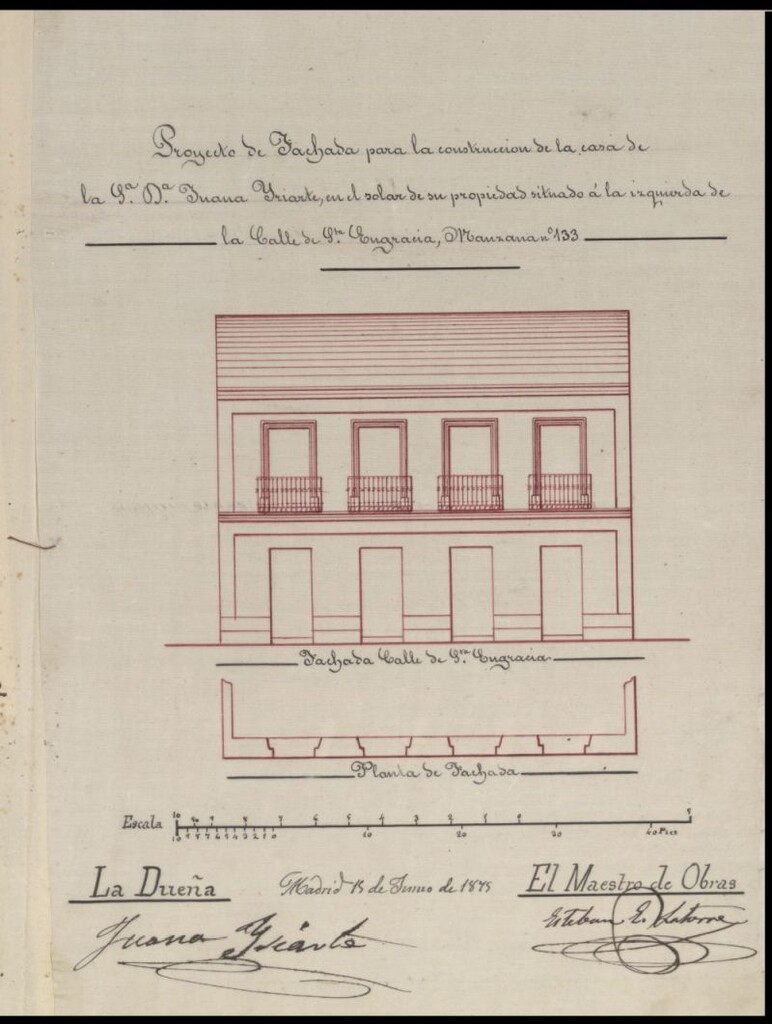 Proyecto de Fachada para la construccion de la casa de
la Sª. Dª. Juana Yriarte, en el solar de su propiedad situado á la izquierda de
la Calle de Sta. Engracia, Manzana nº 133
Fachada Calle de Sta. Engracia
Planta de Fachada
Escala
10 20 30 40 Pies
La Dueña
Madrid 15 de Junio de 1875
El Maestro de Obras
Juana Yriarte
Esteban E. Latorre